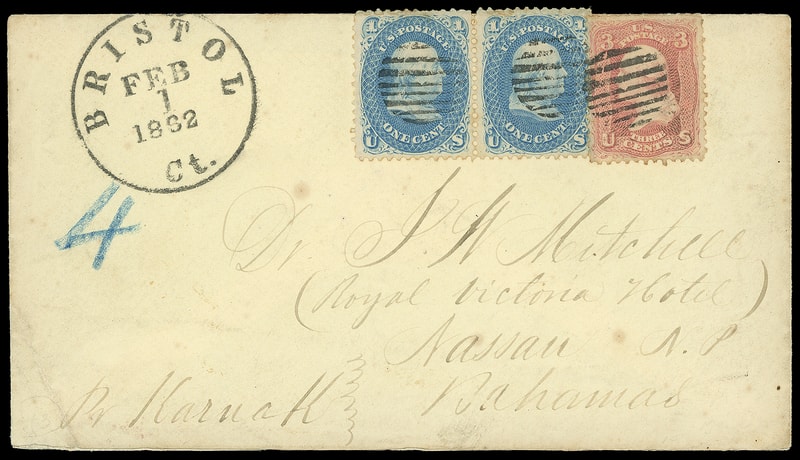 BRISTOL
FEB
1
1862
Ct.
1 1
U.S. POSTAGE
ONE CENT
U S
1 1
U.S. POSTAGE
ONE CENT
U S
3 3
U.S.
POSTAGE
THREE
CENTS
U S
4
Dr. J. W Mitchell
(Royal Victoria Hotel)
Nassau N. P
Bahamas
Pr Karnak